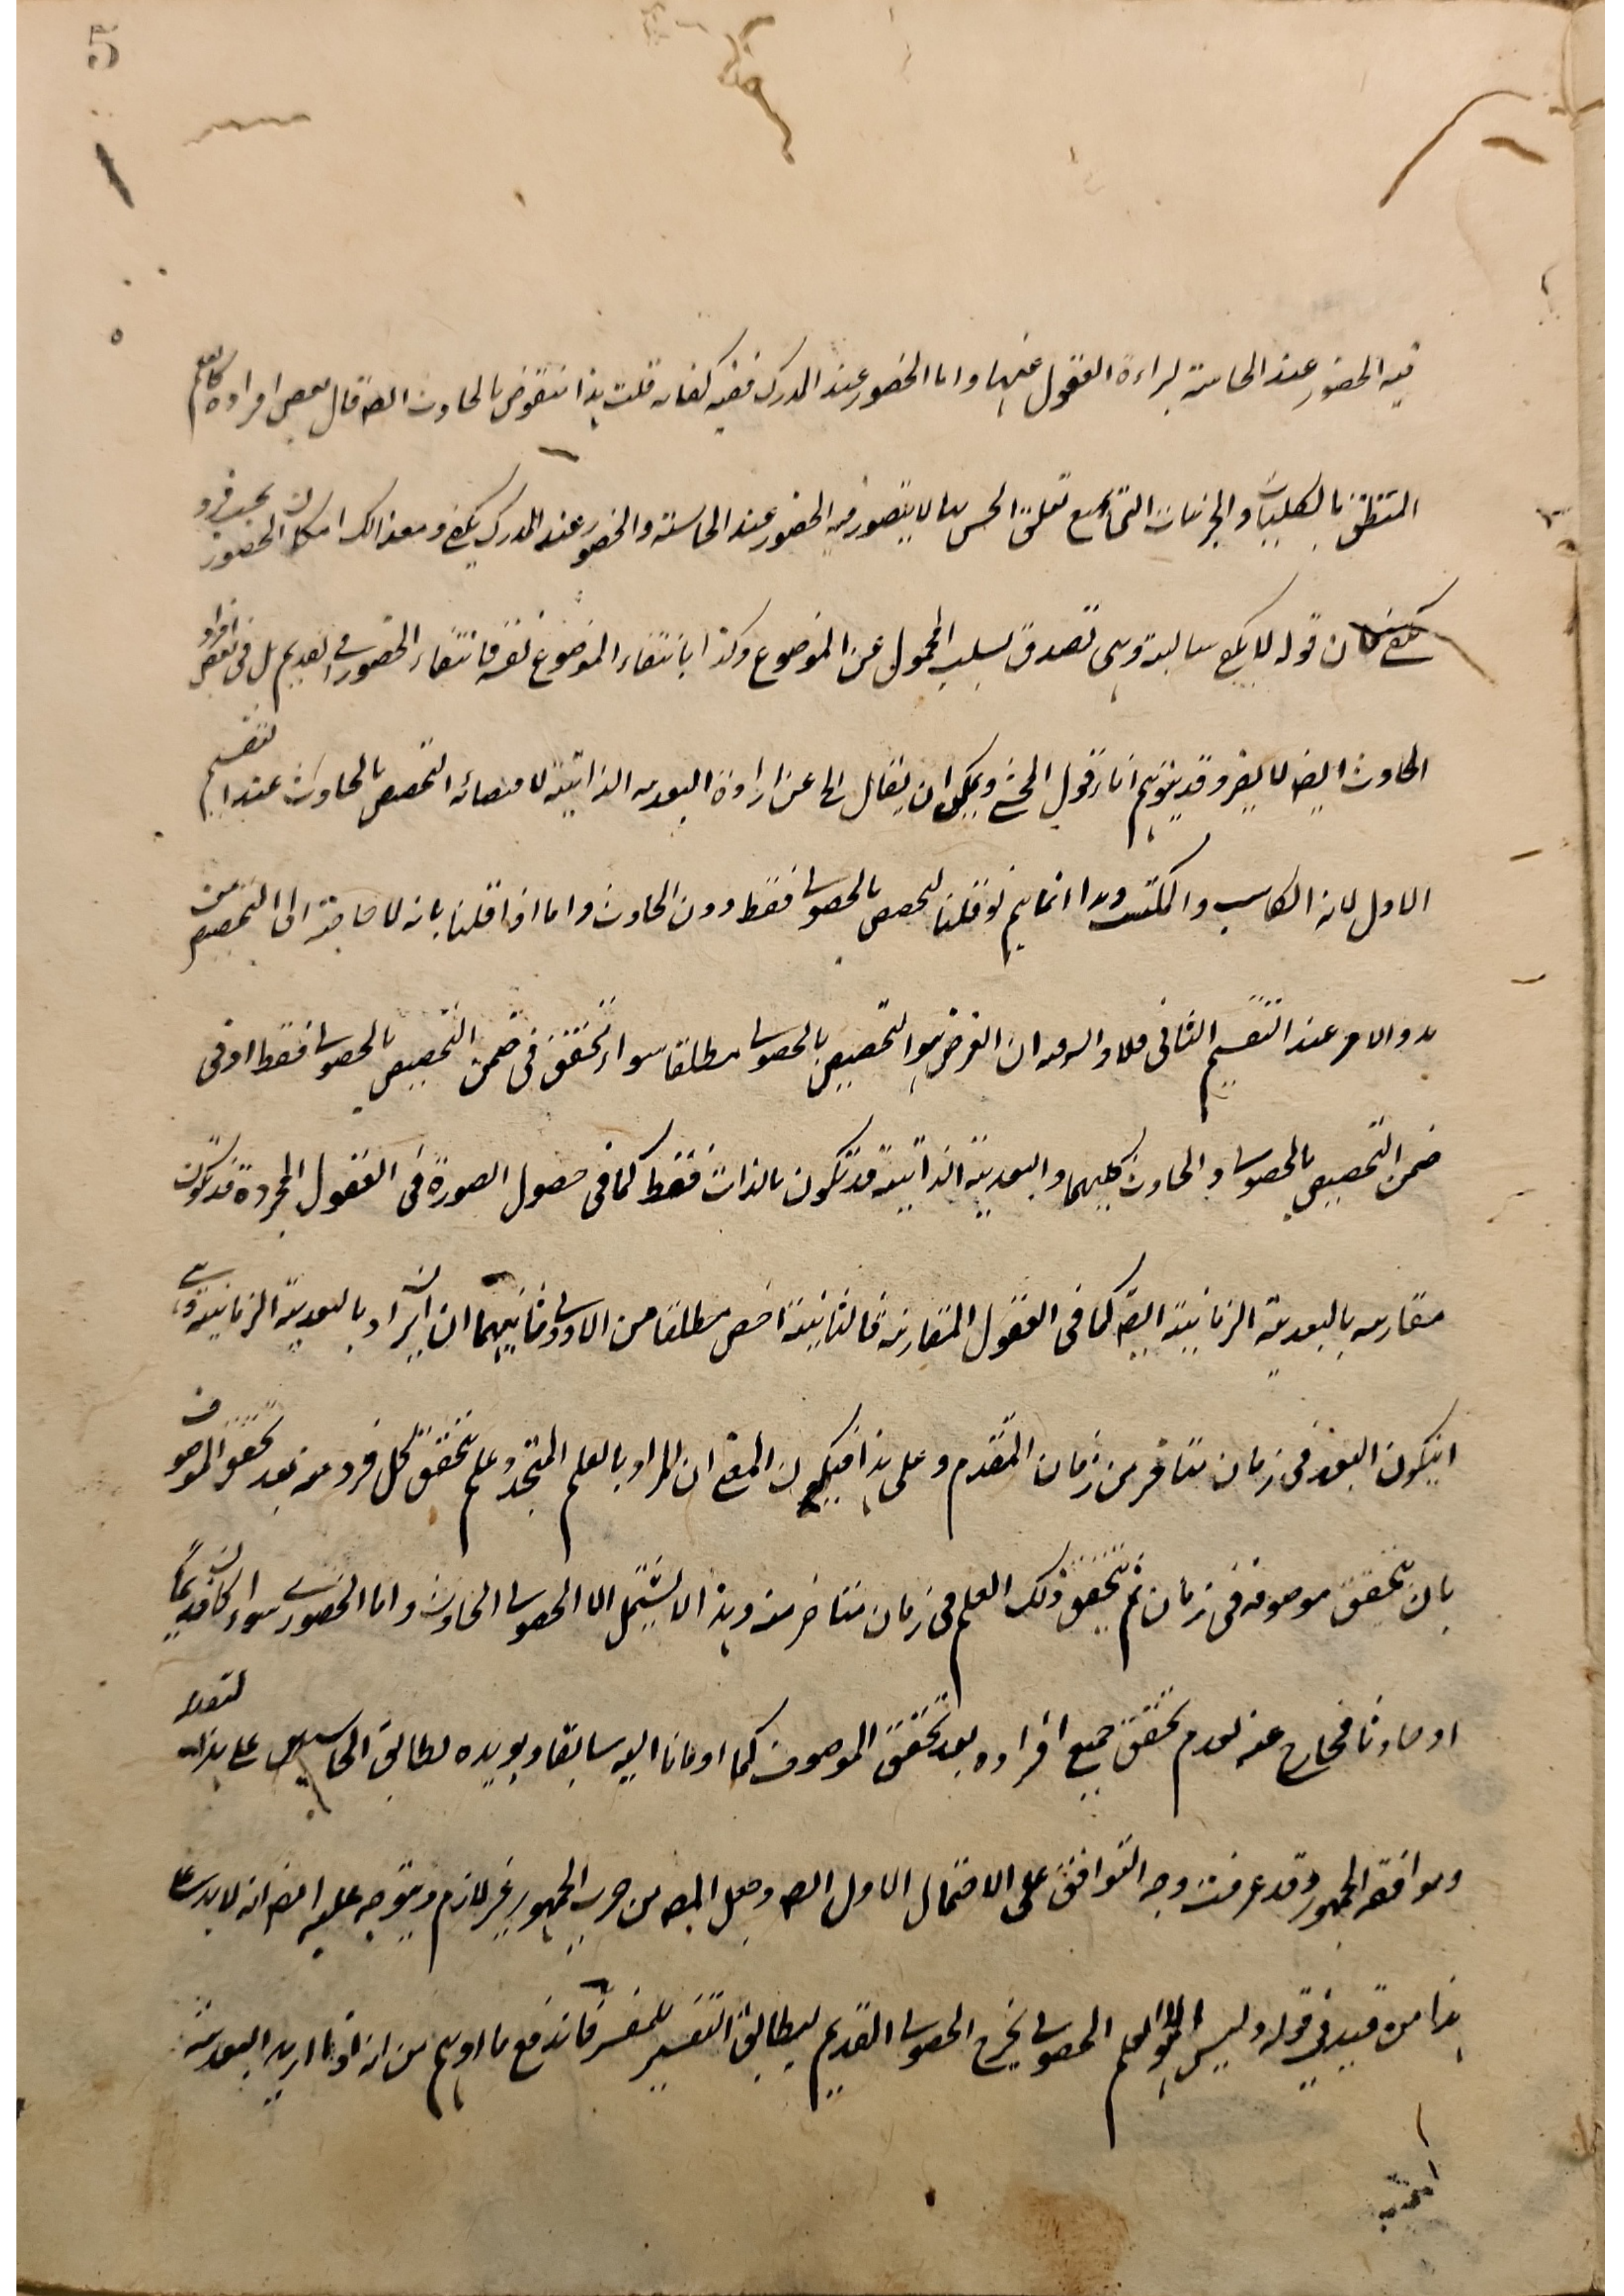 5
فيه الحضور عند الحاسة لبراءة العقول عنها واما الحضور عند المدرك ففيه كفاية قلت هذا منقوض بالحادث ايضا قال بعض افراده كالعلم
المتعلق بالكليات والجزئيات التي يمتنع تعلق الحس بها لا يتصور فيه الحضور عند الحاسة والحضور عند المدرك يكفي ومع ذلك امكان الحضور
قوله لا يكفي سالبة وهي تصدق بسلب المحمول عن الموضوع وكذا بانتفاء الموضوع نفسه فانتفاء الحضور في القديم بل في بعض افراد
الحادث ايضا لا يضر وقد يتوهم قول المحشي ويمكن ان يقال الخ عن ارادة البعدية الذاتية لاقتضائه التخصيص بالحادث عند التقسيم
الاول لانه الكاسب والمكتسب وهذا انما يتم لو قلنا لتخصيص بالحصولي فقط دون الحادث واما اذا قلنا بانه لا حاجة الى التخصيص
عند التقسيم الثاني فلا ان الغرض هو التخصيص بالحصولي مطلقا سواء تحقق في ضمن التخصيص بالحصولي فقط او في
ضمن التخصيص بالحصولي والحادث كليهما والبعدية الذاتية قد تكون بالذات فقط كما في حصول الصورة في العقول المجردة قد تكون
مقارنه بالبعدية الزمانية ايضا كما في العقول المتقارنة فالثانية اخص مطلقا من الاولى وثانيهما ان يراد بالبعدية الزمانية وهي
ان يكون البعد في زمان متاخر من زمان المتقدم وعلى هذا فيكون المعنى ان المراد بالعلم المتجدد علم يتحقق كل فرد منه بعد تحقق الموصوف
بان يتحقق موصوفه في زمان ثم يتحقق ذلك العلم في زمان متاخر منه وهذا لا يشتمل الا الحصولي الحادث واما الحضوري سواء كان قديما
او حادثا فخارج عنه لعدم تحقق جميع افراده بعد تحقق الموصوف كما اومانا اليه سابقا ويويده تطابق على هذا
وموافقة الجمهور وقد عرفت وجه التوافق على الاحتمال الاول ايضا وجعل المص من حرب الجمهور غير لازم ويتوجه عليه ايضا انه لا بد على
هذا من قيد في قوله وليس الا العلم الحصولي يخرج الحصولي القديم ليطابق التفسير للمفسر فاندفع ما اوهم من انه اذا اريد البعدية